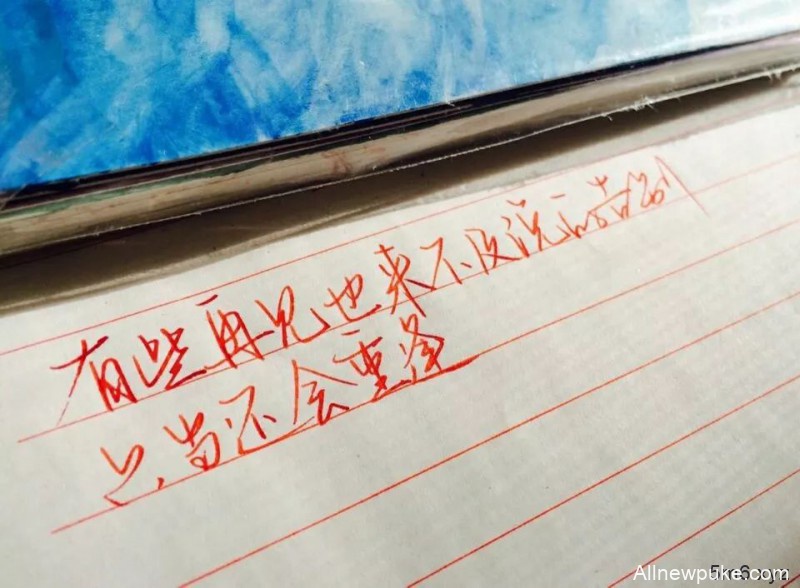 有些再见也来不及说告别
只当还会重逢
Allnewpuke.com